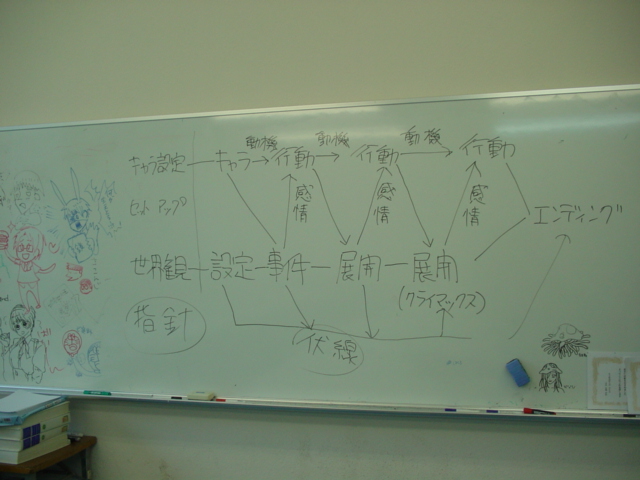 動機 動機 動機
キャラ設定 キャラ 行動 行動 行動
感情 感情 感情
セットアップ
エンディング
世界観 設定 事件 展開 展開
(クライマックス)
指針
伏線